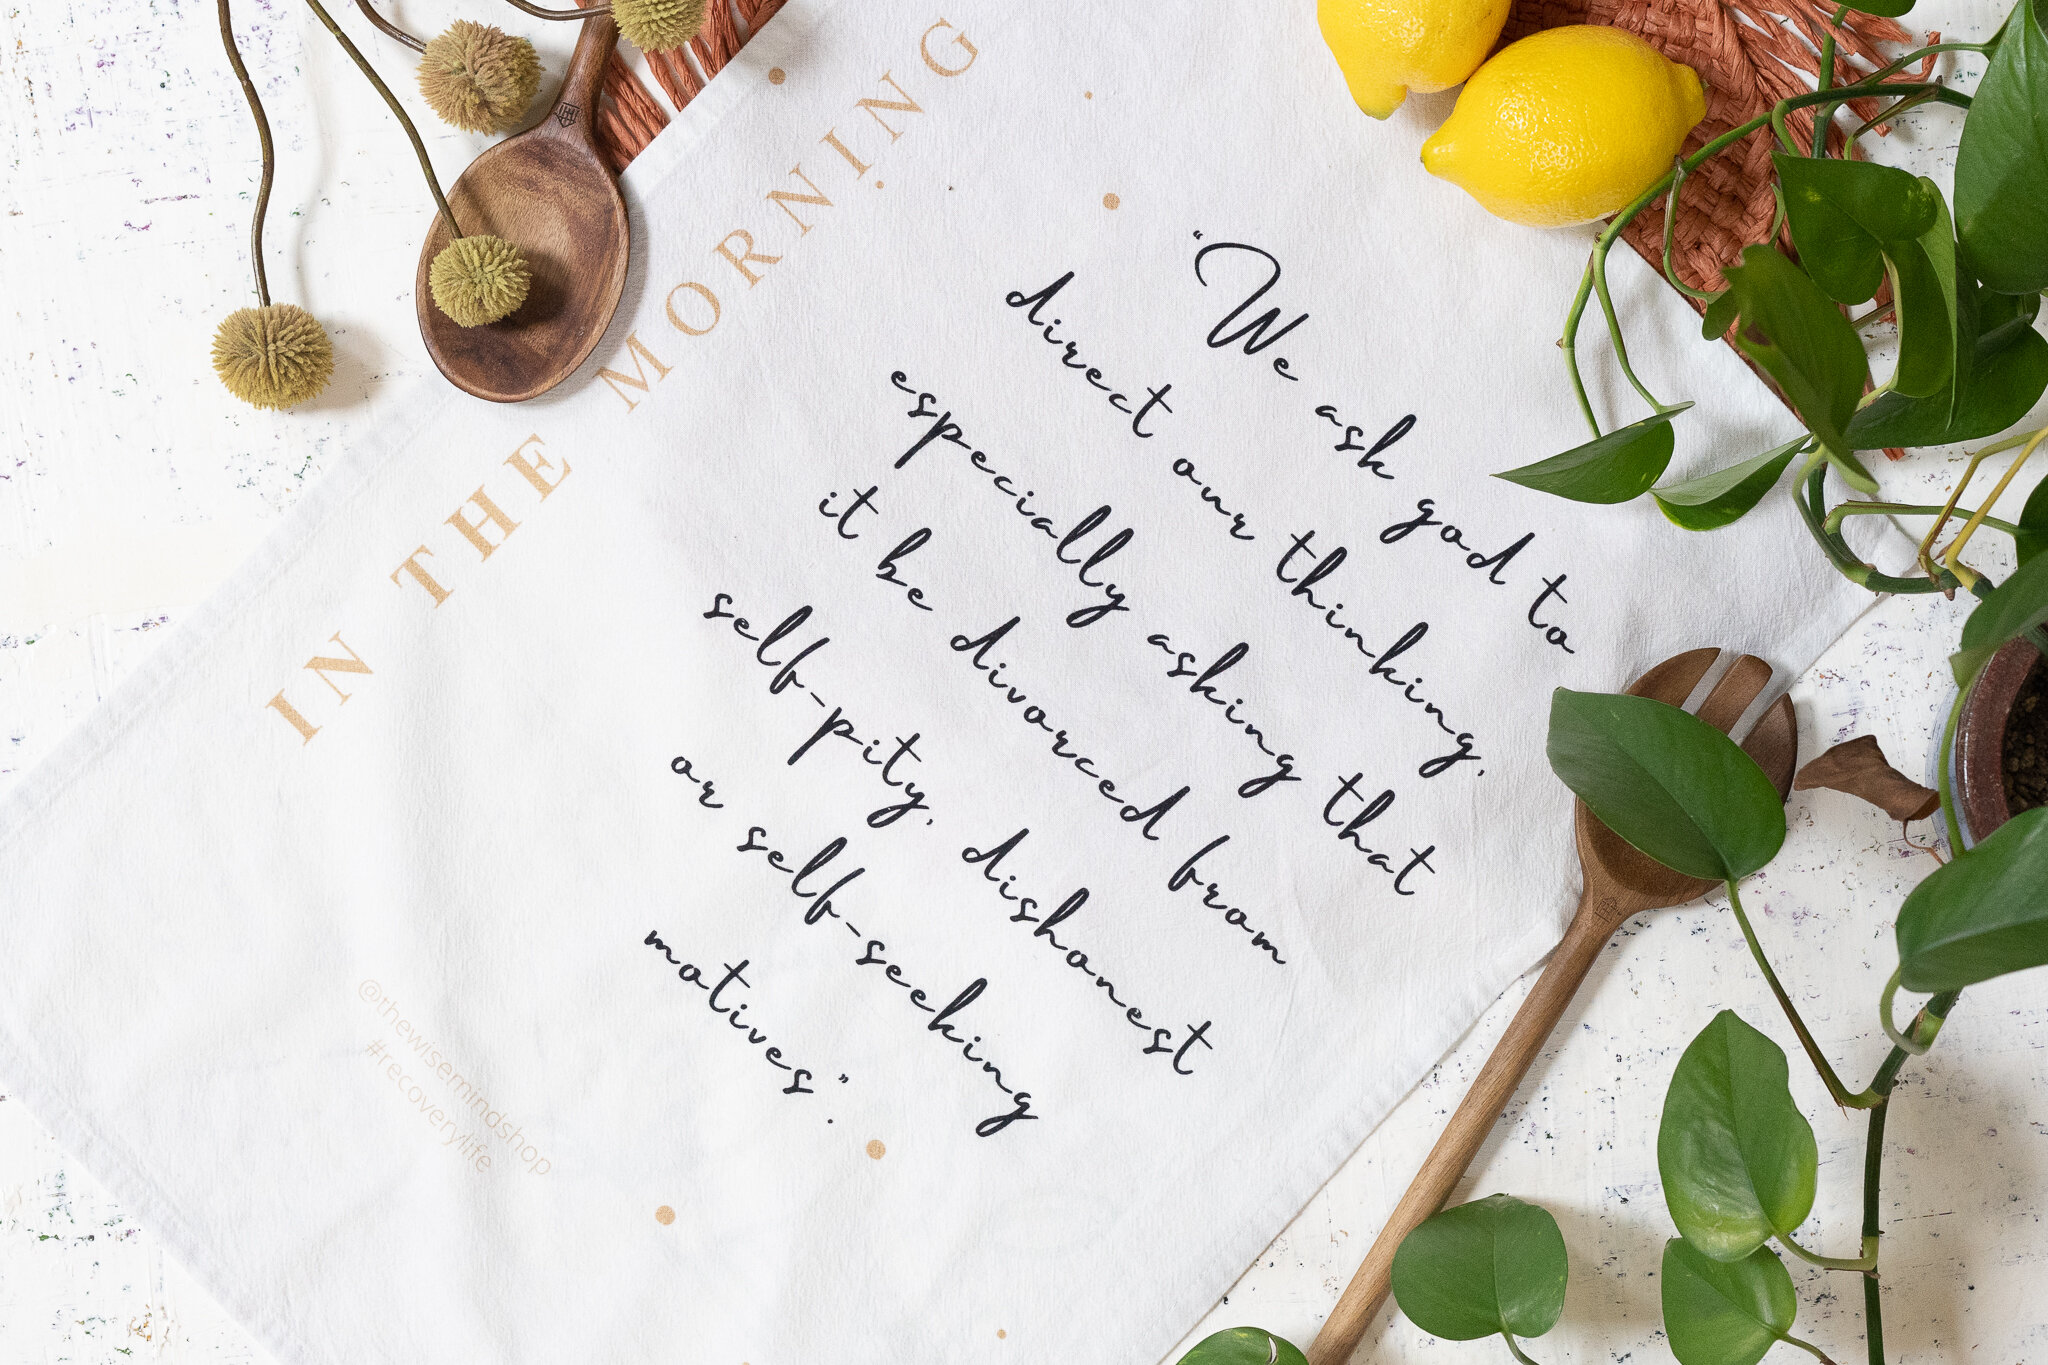 IN THE MORNING
“We ask god to
direct our thinking,
especially asking that
it be divorced from
self-pity, dishonest
or self-seeking
motives”.
@thewisemindshop
#recoverylife